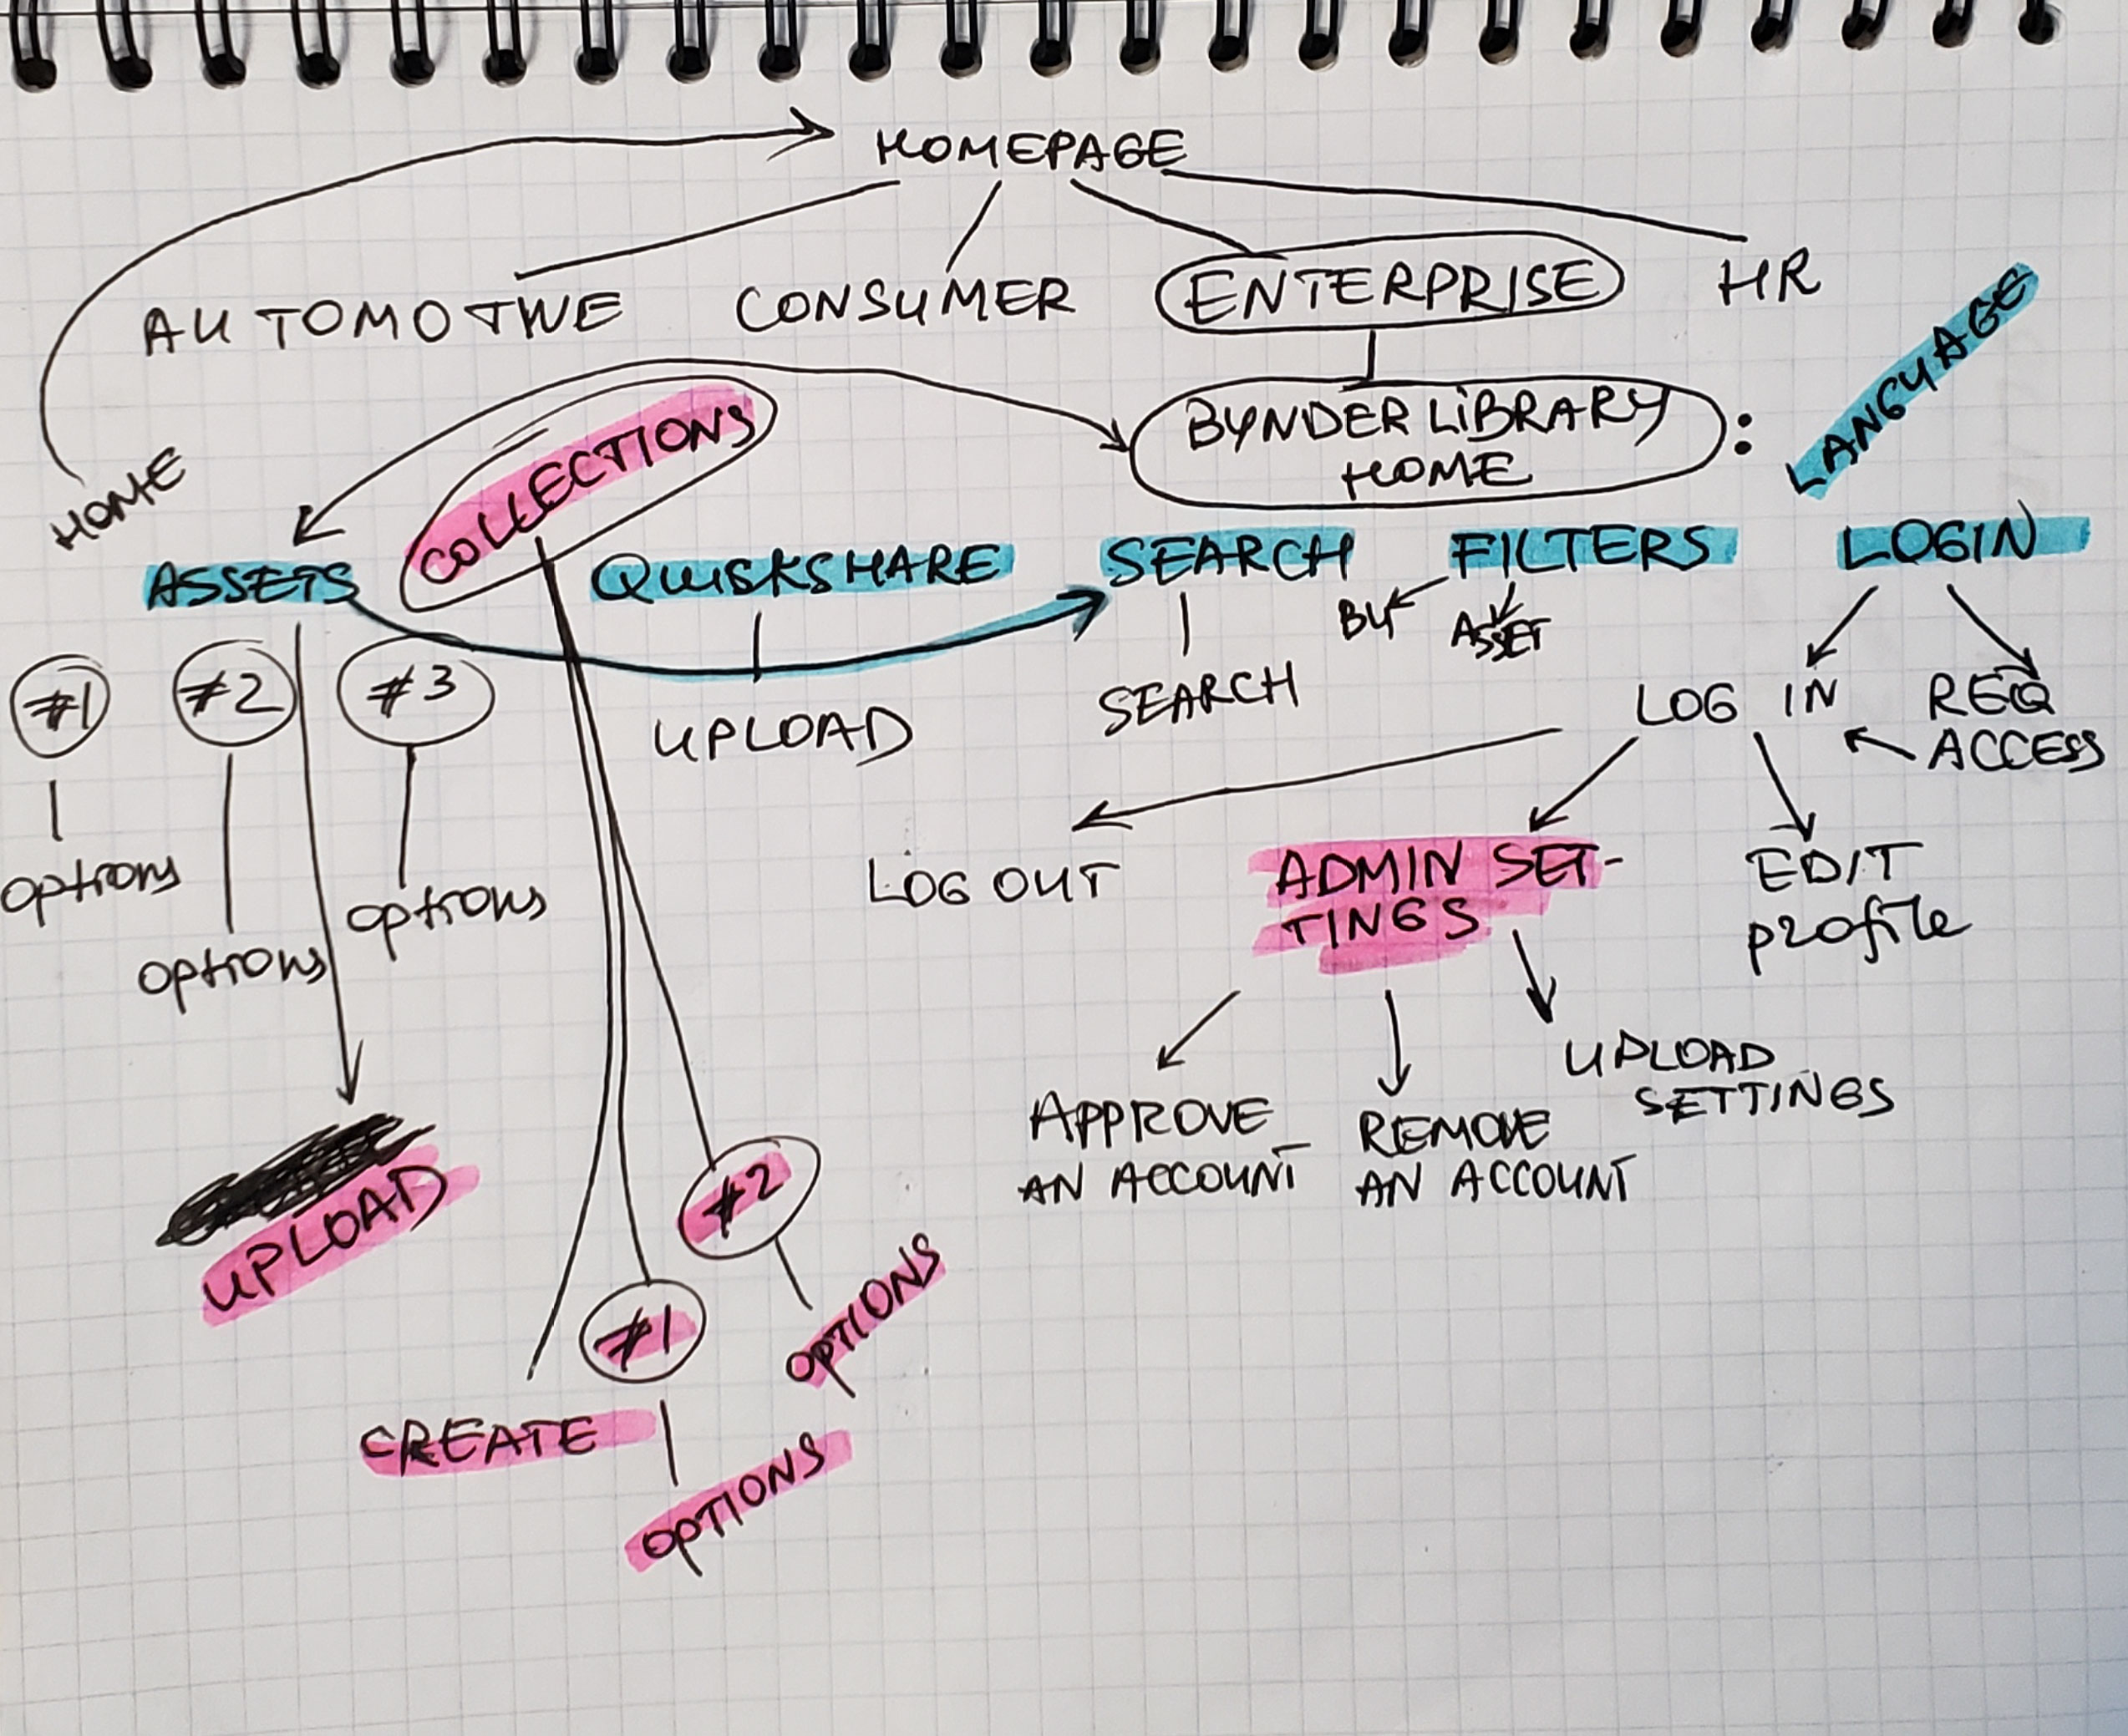 HOMEPAGE
AUTOMOTIVE
CONSUMER
ENTERPRISE
HR
LANGUAGE
COLLECTIONS
BYNDER LIBRARY
HOME
:
HOME
ASSETS
QUISKSHARE
SEARCH
FILTERS
LOGIN
BY
ASSET
#1
#2
#3
UPLOAD
SEARCH
LOG IN
REQ
ACCESS
options
options
options
LOG OUT
ADMIN SET-
TINGS
EDIT
profile
UPLOAD
SETTINGS
APPROVE
AN ACCOUNT
REMOVE
AN ACCOUNT
UPLOAD
#2
#1
OPTIONS
CREATE
OPTIONS